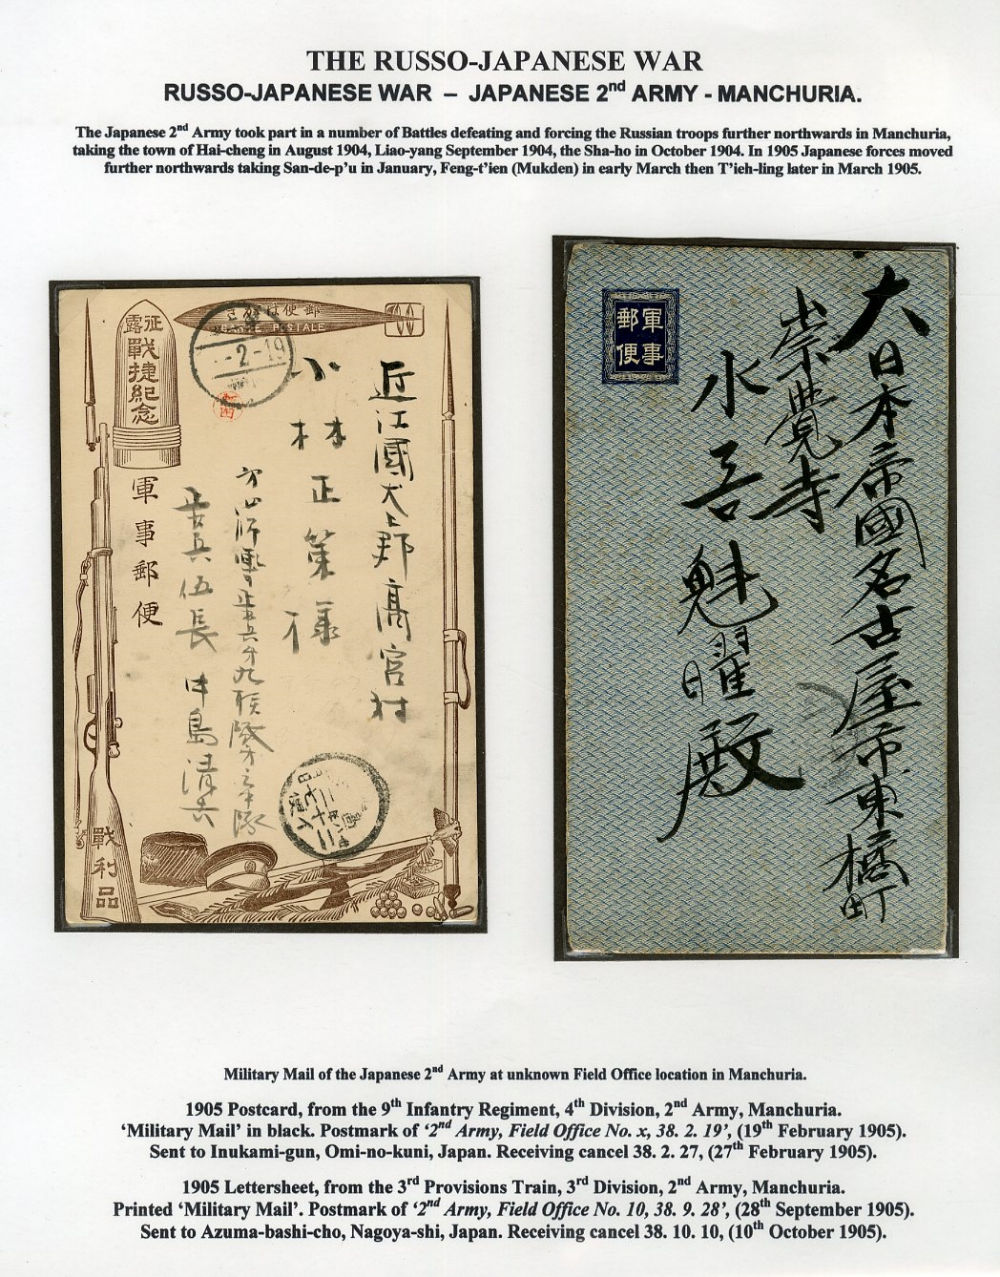 THE RUSSO-JAPANESE WAR
RUSSO-JAPANESE WAR – JAPANESE 2nd ARMY - MANCHURIA.
The Japanese 2nd Army took part in a number of Battles defeating and forcing the Russian troops further northwards in Manchuria,
taking the town of Hai-cheng in August 1904, Liao-yang September 1904, the Sha-ho in October 1904. In 1905 Japanese forces moved
further northwards taking San-de-p'u in January, Feng-t'ien (Mukden) in early March then T'ieh-ling later in March 1905.
征露
戰捷紀念
軍事郵便
戰利品
POSTALE
2-19
近江國犬上郡高宮村
小林正策様
歩兵伍長 中島清
軍事
郵便
大日本帝國名古屋市東橘町
崇覺寺
水吾魁曜殿
Military Mail of the Japanese 2nd Army at unknown Field Office location in Manchuria.
1905 Postcard, from the 9th Infantry Regiment, 4th Division, 2nd Army, Manchuria.
'Military Mail' in black. Postmark of '2nd Army, Field Office No. x, 38. 2. 19', (19th February 1905).
Sent to Inukami-gun, Omi-no-kuni, Japan. Receiving cancel 38. 2. 27, (27th February 1905).
1905 Lettersheet, from the 3rd Provisions Train, 3rd Division, 2nd Army, Manchuria.
Printed 'Military Mail'. Postmark of '2nd Army, Field Office No. 10, 38. 9. 28', (28th September 1905).
Sent to Azuma-bashi-cho, Nagoya-shi, Japan. Receiving cancel 38. 10. 10, (10th October 1905).